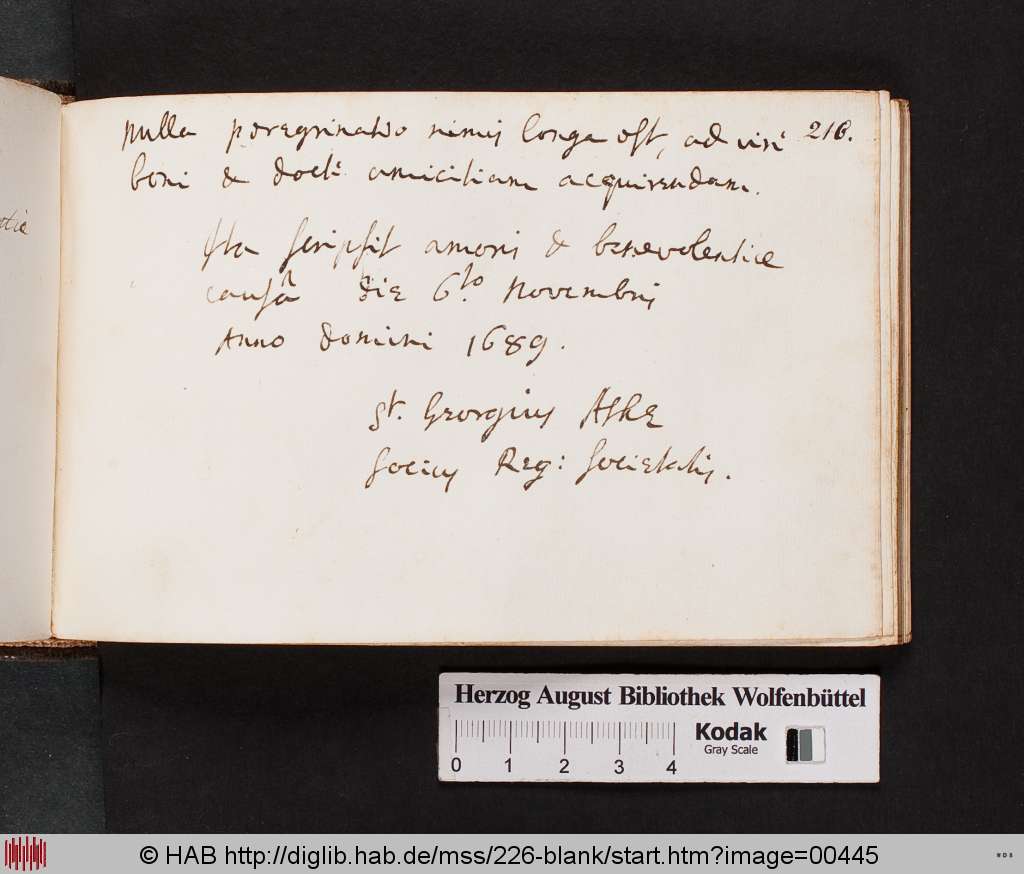 Nulla peregrinatio nimis longa est, ad viri 216.
boni & docti amicitiam acquirendam.
Ita scripsit amoris & benevolentiæ
causâ die 6to Novembris
Anno domini 1689.
St. Georgius Ashe
Socius Reg: Societatis.
Herzog August Bibliothek Wolfenbüttel
Kodak
Gray Scale
0 1 2 3 4
© HAB http://diglib.hab.de/mss/226-blank/start.htm?image=00445